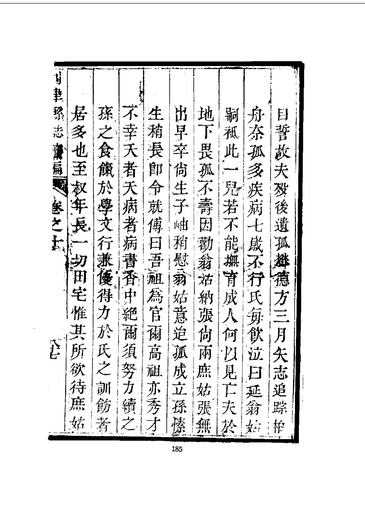 日誓故夫歿後遺孤懋德方三月矢志追踪柏
舟奈孤多疾病七歲不行氏每飲泣曰延翁姑
嗣祗此一兒若不能撫育成人何以見亡夫於
地下畏孤不壽因勸翁姑納張尙兩庶姑張無
出早卒尙生子岫稍慰翁姑意迨孤成立孫愫
生稍長卽令就傅曰吾祖爲官爾高祖亦秀才
不幸夭者夭病者病書香中絕爾須努力續之
孫之食餼於學文行兼優得力於氏之訓飭者
居多也至叔年長一切田宅惟其所欲待庶姑
津縣志 編 卷之十
185